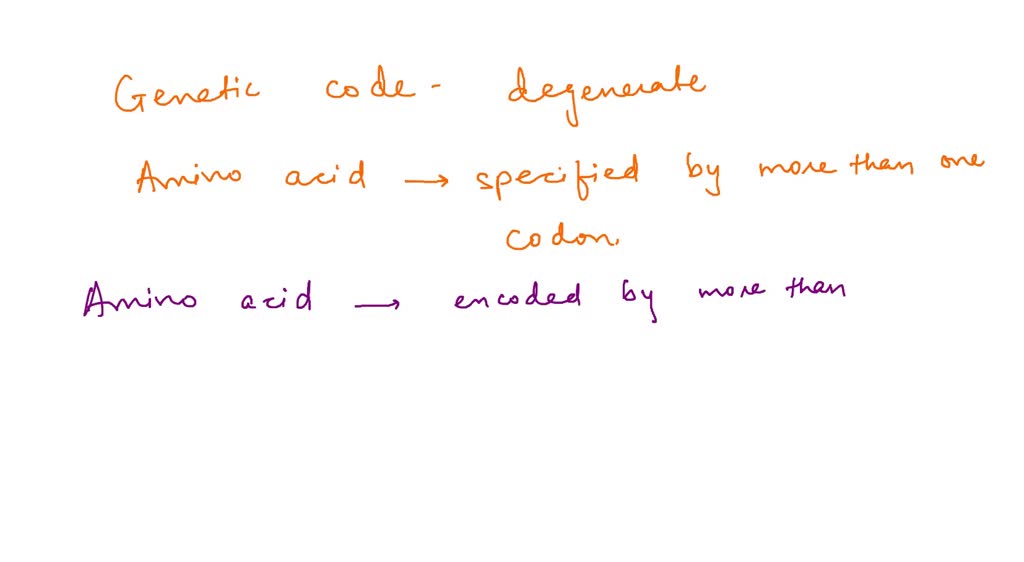 Genetic code - degenerate
Amino acid → specified by more than one
codon.
Amino acid → encoded by more than